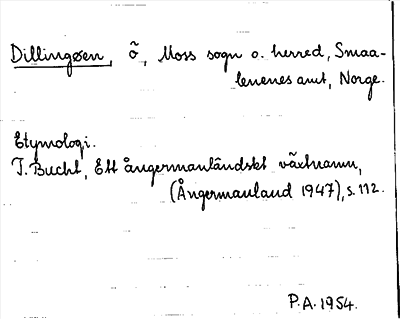 Dillingøen, õ, Moss sogn o. herred, Smaa-
lenenes amt, Norge.
Etymologi.
T. Bucht, Ett ångermanländskt växtnamn,
(Ångermanland 1947), s. 112.
P.A. 1954.